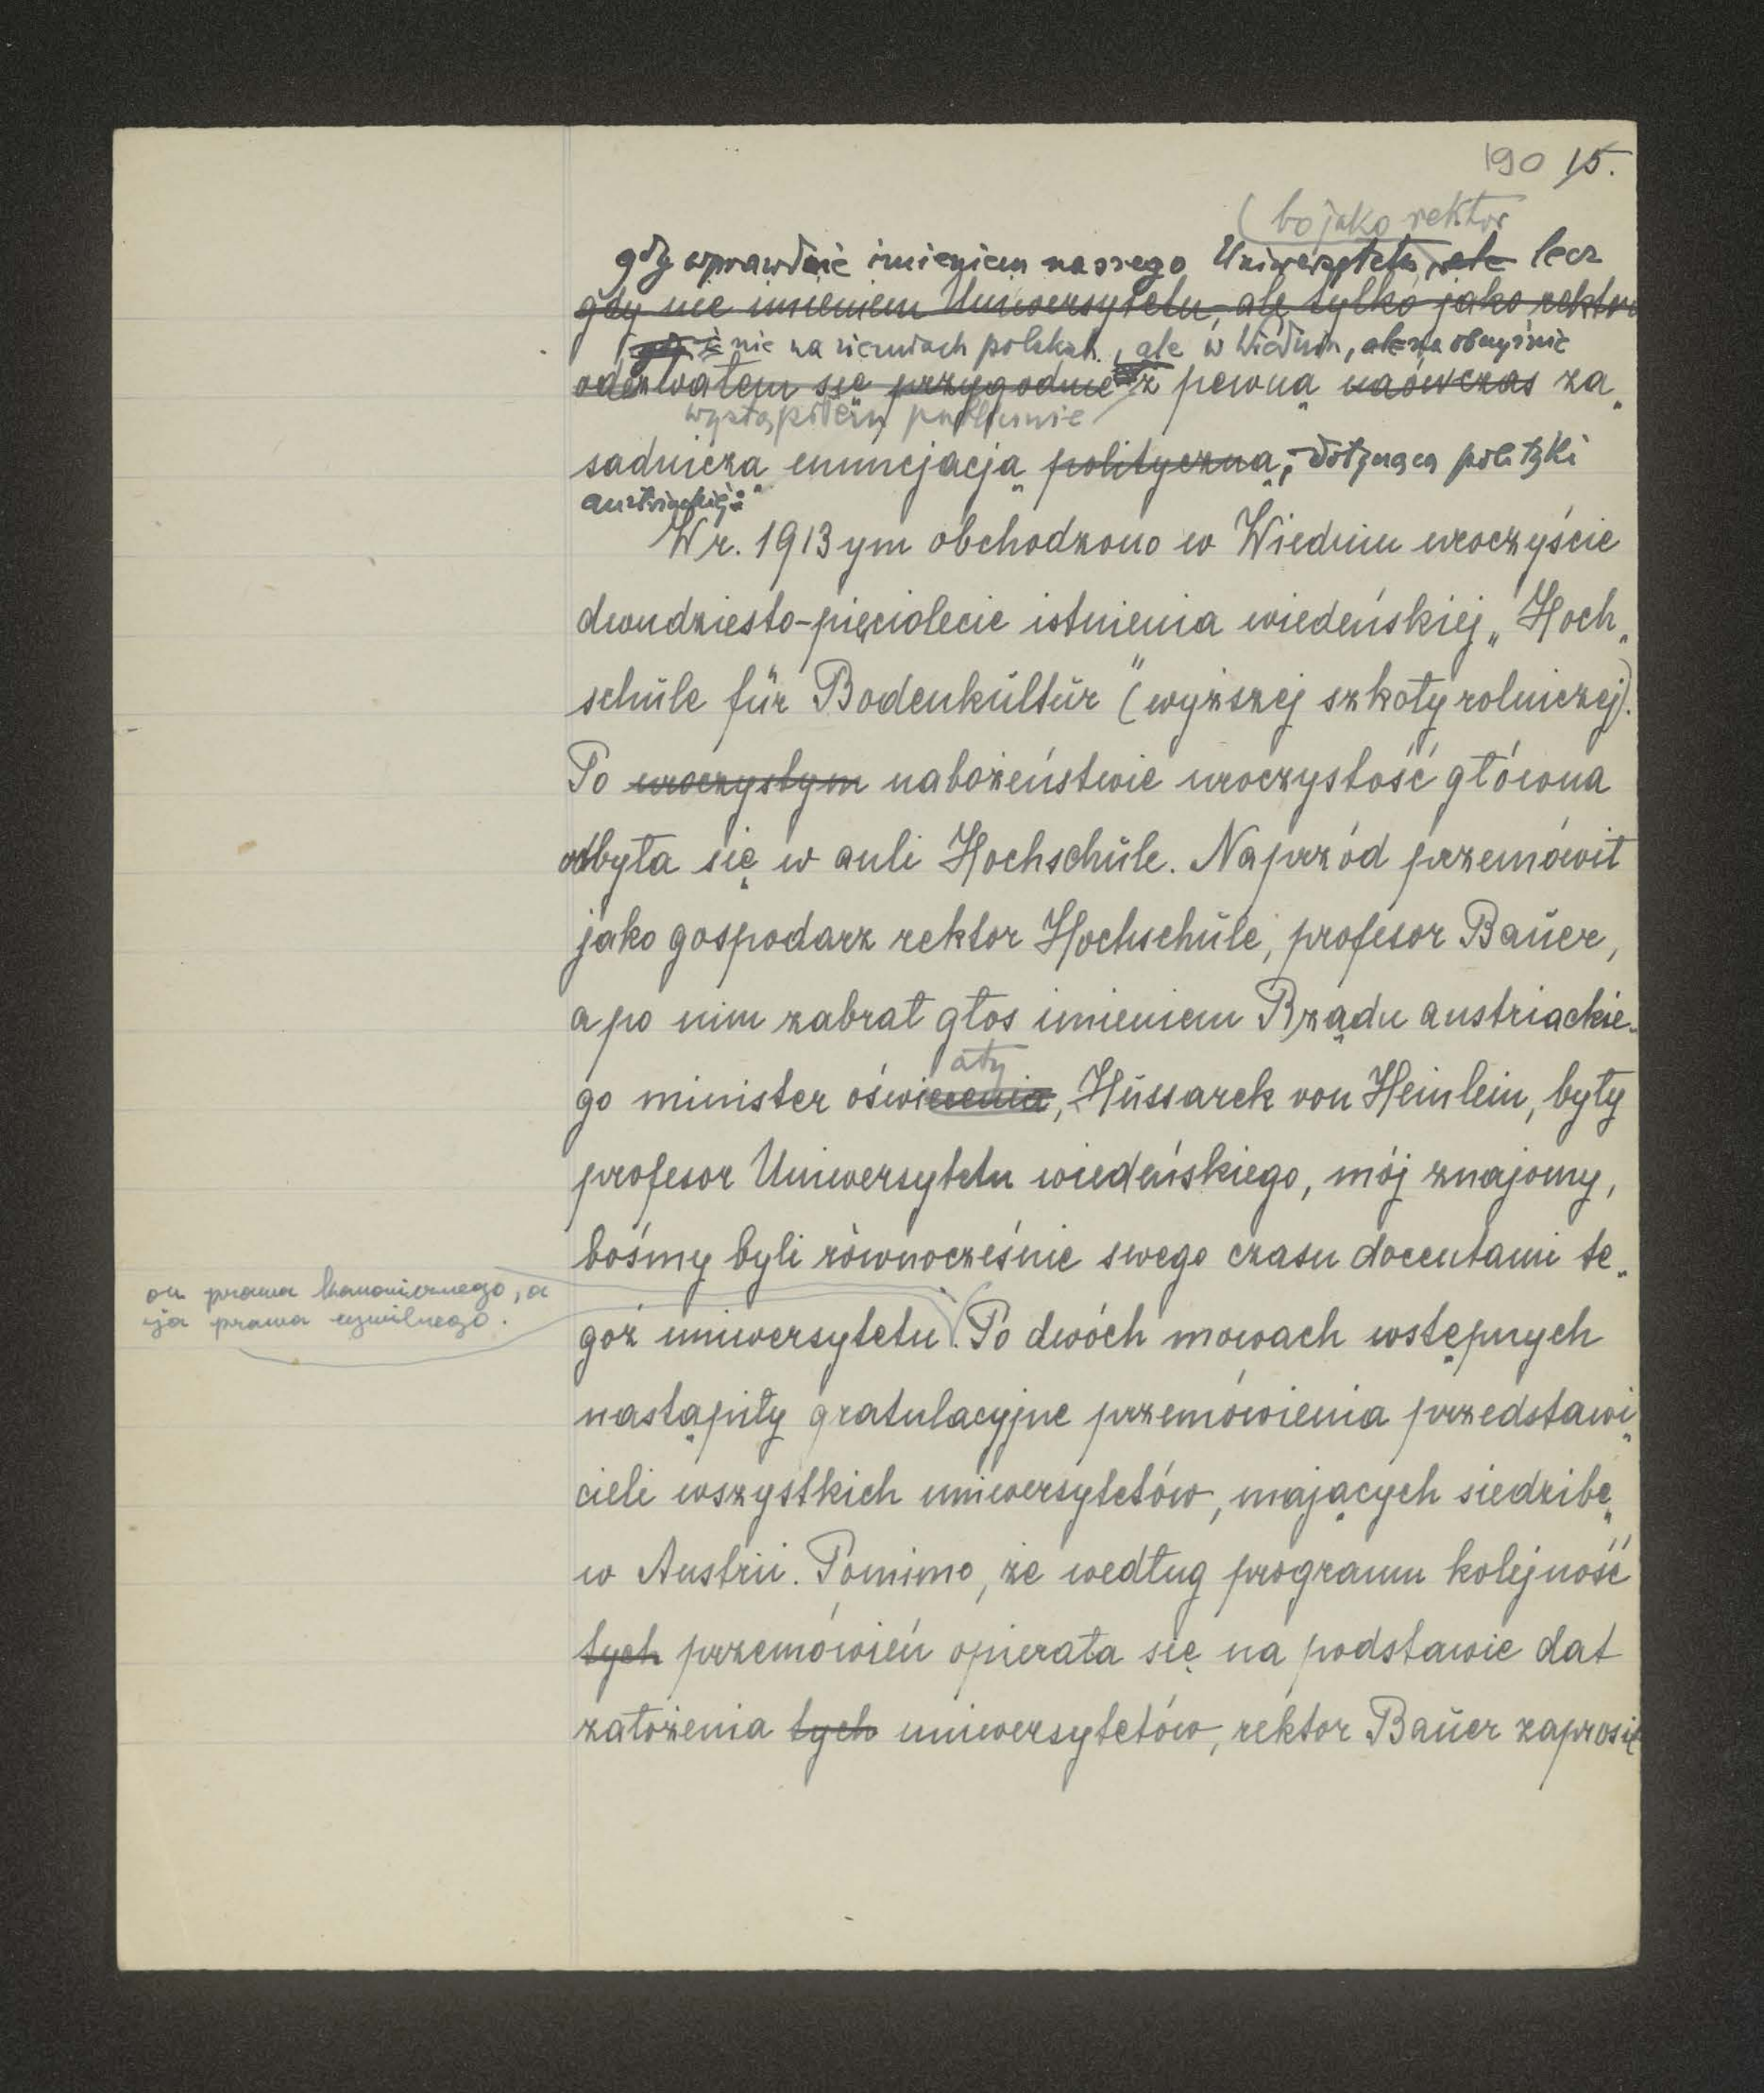 190 15.
(bo jako rektor
gdy wprawdzie imieniem naszego Uniwersytetu, ale lecz
gdy nie imieniem Uniwersytetu, ale tylko jako rektor
gdy i nie na ziemiach polskich, ale w Wiedniu,
odezwałem się przygodnie z pewną naówczas za„
wystąpiłem publicznie
sadniczą enuncjacją polityczną, dotyczącą polityki
austriackiej:
W r. 1913ym obchodzono w Wiedniu uroczyście
dwudziesto-pięciolecie istnienia wiedeńskiej „Hoch„
schule für Bodenkultur" (wyższej szkoły rolniczej).
Po uroczystym nabożeństwie uroczystość główna
odbyła się w auli Hochschule. Naprzód przemówił
jako gospodarz rektor Hochschule, profesor Bauer,
a po nim zabrał głos imieniem Rządu austriackie-
aty
go minister oświecenia, Hussarek von Heinlein, były
profesor Uniwersytetu wiedeńskiego, mój znajomy,
bośmy byli równocześnie swego czasu docentami te„
on prawa kanonicznego, a
ja prawa cywilnego.
goż uniwersytetu. Po dwóch mowach wstępnych
nastąpiły gratulacyjne przemówienia przedstawi„
cieli wszystkich uniwersytetów, mających siedzibę
w Austrii. Pomimo, że według programu kolejność
tych przemówień opierała się na podstawie dat
założenia tych uniwersytetów, rektor Bauer zaprosił